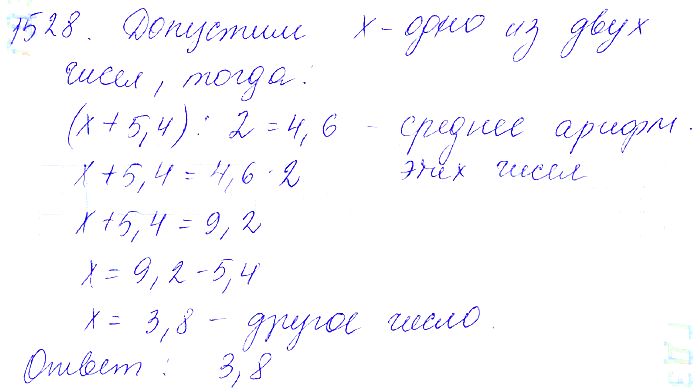 1528. Допустим x - одно из двух
чисел, тогда:
(x+5,4) : 2 = 4,6 - среднее арифм.
x+5,4 = 4,6 · 2 этих чисел
x+5,4 = 9,2
x = 9,2 - 5,4
x = 3,8 - другое число.
Ответ : 3,8